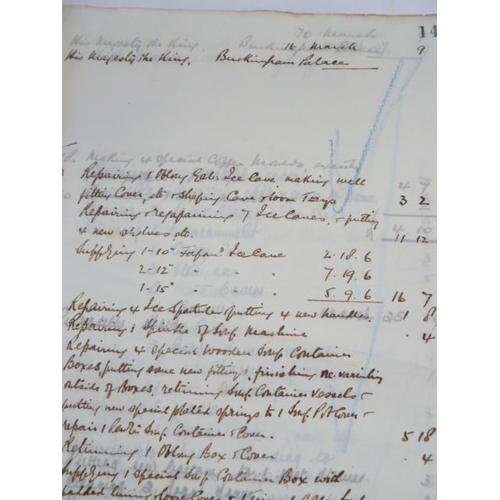 To March
14
His Majesty the King, Buckingham
16 March 9
His Majesty the King, Buckingham Palace
Making 4 special Copper Moulds,
Repairing 1 Oblong Galv Ice Cave making well
fitting Cover, do & Shaping Cave & loose Trays 3 2
Repairing & rejapanning 7 Ice Caves, & putting
4 new do. 11 12
Supplying 1-10" Japan'd Ice Cave 2.18.6
2-12" " " 7.19.6
1-15" " " 5.9.6 16 7
Repairing 4 Ice Spatulas putting 4 new handles. 1 8
Repairing 1 Spindle of Soup Machine .4
Repairing 4 special Wooden Soup Container
Boxes, putting some new fittings, finishing re. varnishing
outside of Boxes, retinning Soup Container Vessels &
putting new special plated springs to 1 Soup Pot Cover &
repair 1 Soup Container & Cover. 5 18
Retinning 1 Oblong Box & Cover .4
Supplying 1 special Soup Container Box with